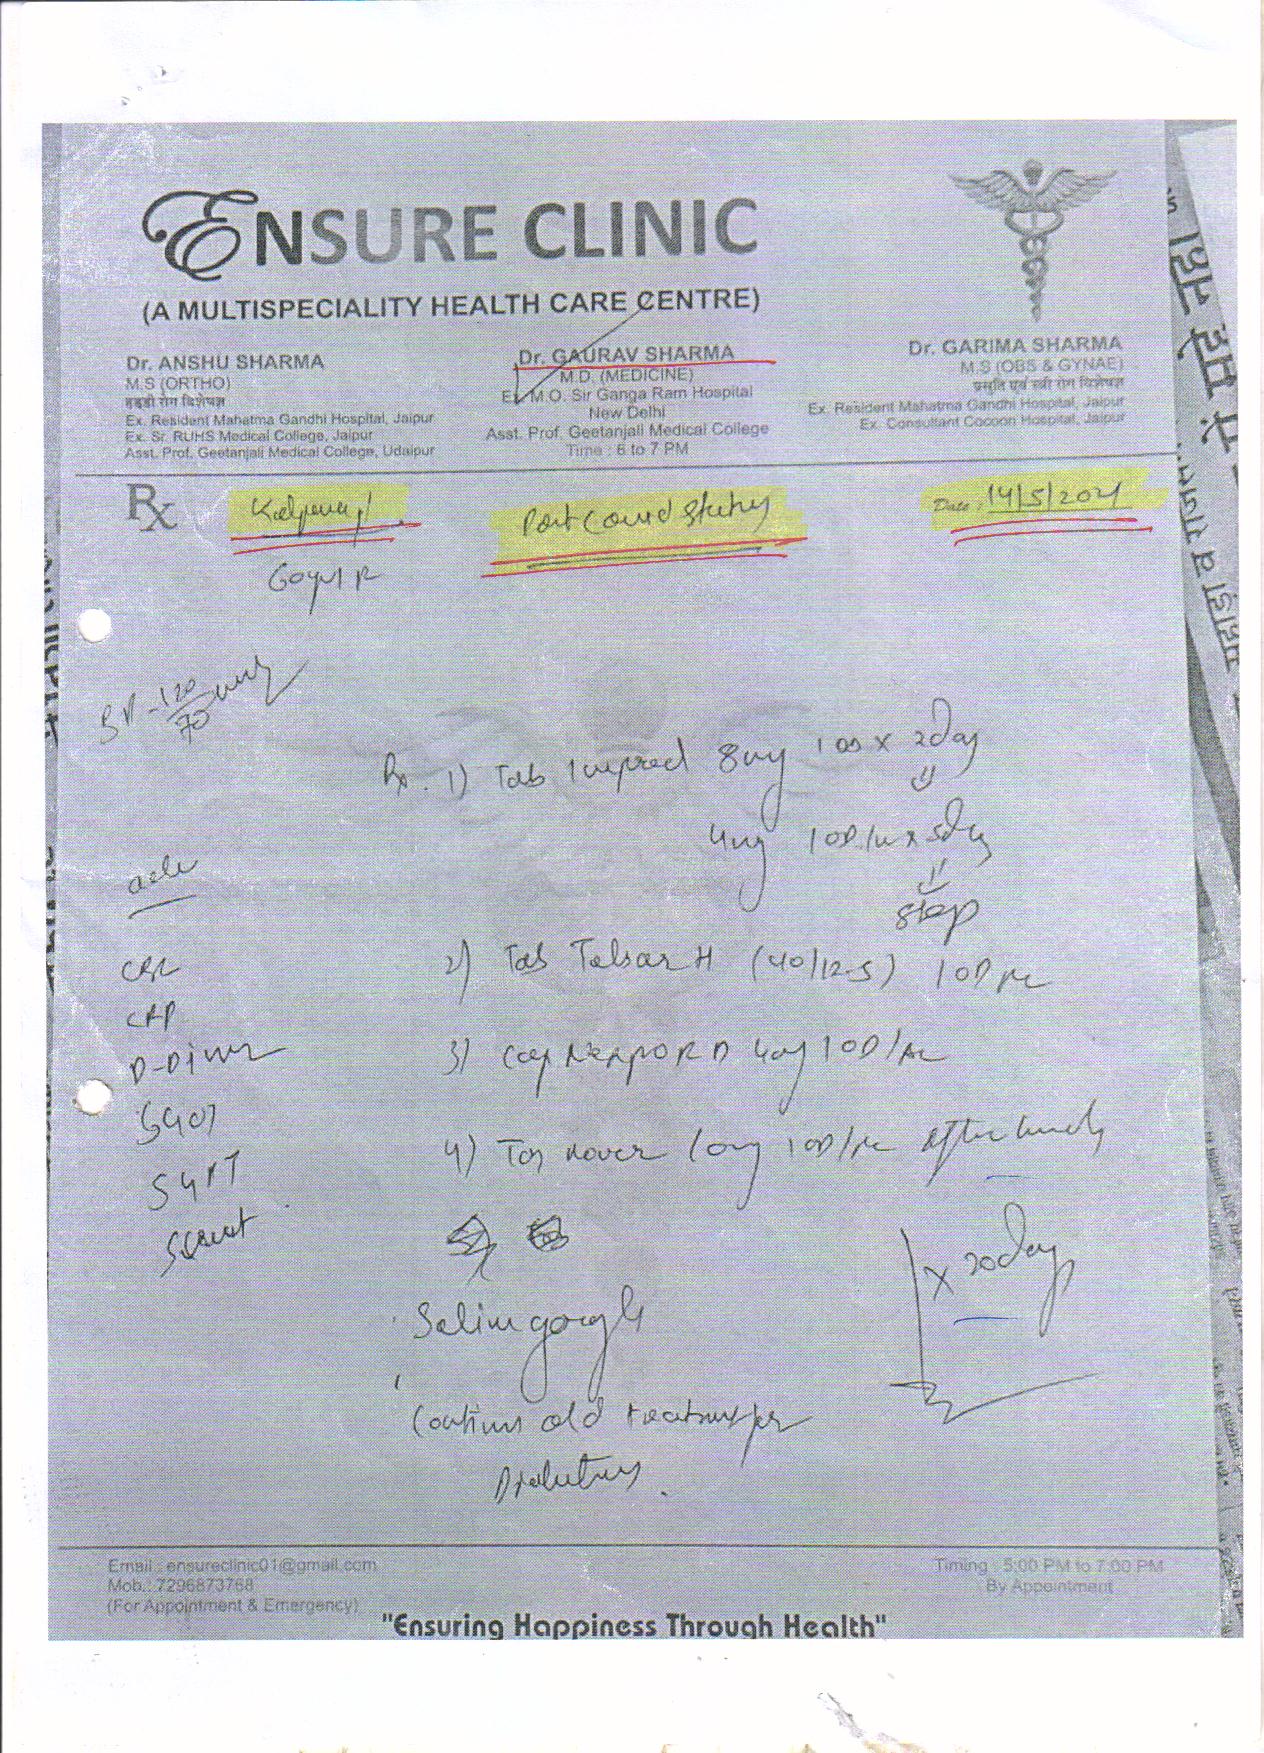 ENSURE CLINIC
(A MULTISPECIALITY HEALTH CARE CENTRE)
Dr. ANSHU SHARMA
M.S (ORTHO)
हड्डी रोग विशेषज्ञ
Ex. Resident Mahatma Gandhi Hospital, Jaipur
Ex. Sr. RUHS Medical College, Jaipur
Asst. Prof. Geetanjali Medical College, Udaipur
Dr. GAURAV SHARMA
M.D. (MEDICINE)
Ex. M.O. Sir Ganga Ram Hospital
New Delhi
Asst. Prof. Geetanjali Medical College
Time : 6 to 7 PM
Dr. GARIMA SHARMA
M.S (OBS & GYNAE)
प्रसूति एवं स्त्री रोग विशेषज्ञ
Ex. Resident Mahatma Gandhi Hospital, Jaipur
Ex. Consultant Cocoon Hospital, Jaipur
Rx
Post Covid Status
Date : 14/5/2021
BP - 120/70
Rx. 1) Tab 8mg 1 OD x 2day
4mg 1 OD x 5day
stop
2) Tab Telsar H (40/12.5) 1 OD
3) Cap 1 OD/AC
4) Tab 10mg 1 OD after lunch
x 20day
CRP
D-Dimer
SGOT
SGPT
Saline gargle
Continue old treatment for
Email : ensureclinic01@gmail.com
Mob.: 7296873768
(For Appointment & Emergency)
Timing : 5:00 PM to 7:00 PM
By Appointment
"Ensuring Happiness Through Health"